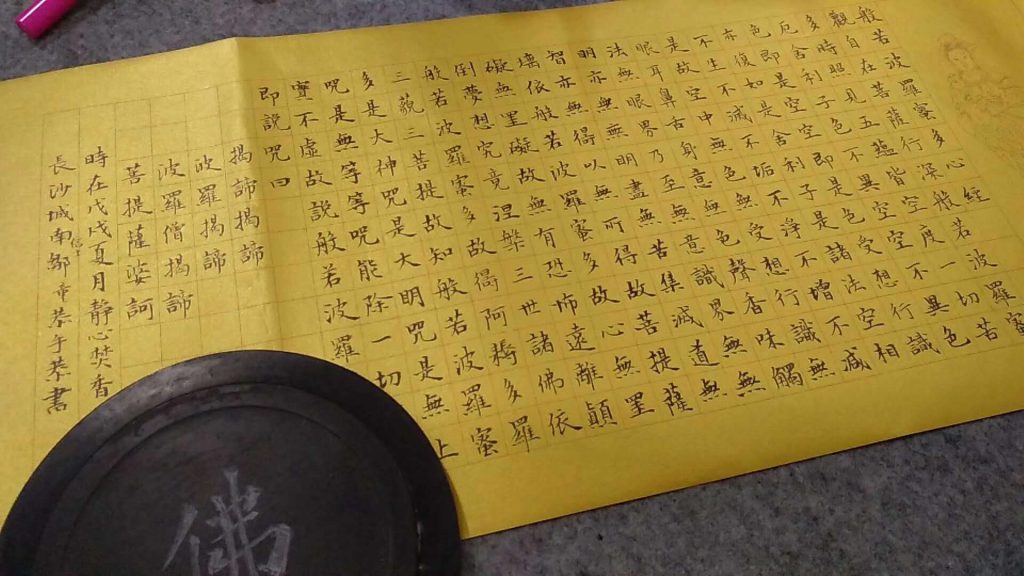 般若波羅蜜多心經
觀自在菩薩行深般若波羅蜜
多時照見五蘊皆空度一切苦
厄舍利子色不異空空不異色
色即是空空即是色受想行識
亦復如是舍利子是諸法空相
不生不滅不垢不淨不增不減
是故空中無色無受想行識無
眼耳鼻舌身意無色聲香味觸
法無眼界乃至無意識界無無
明亦無無明盡無苦集滅道無
智亦無得以無所得故菩提薩
埵依般若波羅蜜多故心無罣
礙無罣礙故無有恐怖遠離顛
倒夢想究竟涅槃三世諸佛依
般若波羅蜜多故得阿耨多羅
三藐三菩提故知般若波羅蜜
多是大神咒是大明咒是無上
咒是無等等咒能除一切
實不虛故說般若波羅
即說咒曰
揭諦揭諦
波羅揭諦
波羅僧揭諦
菩提薩婆訶
時在戊戌夏月靜心焚香
長沙城南信士鄒恭書
佛